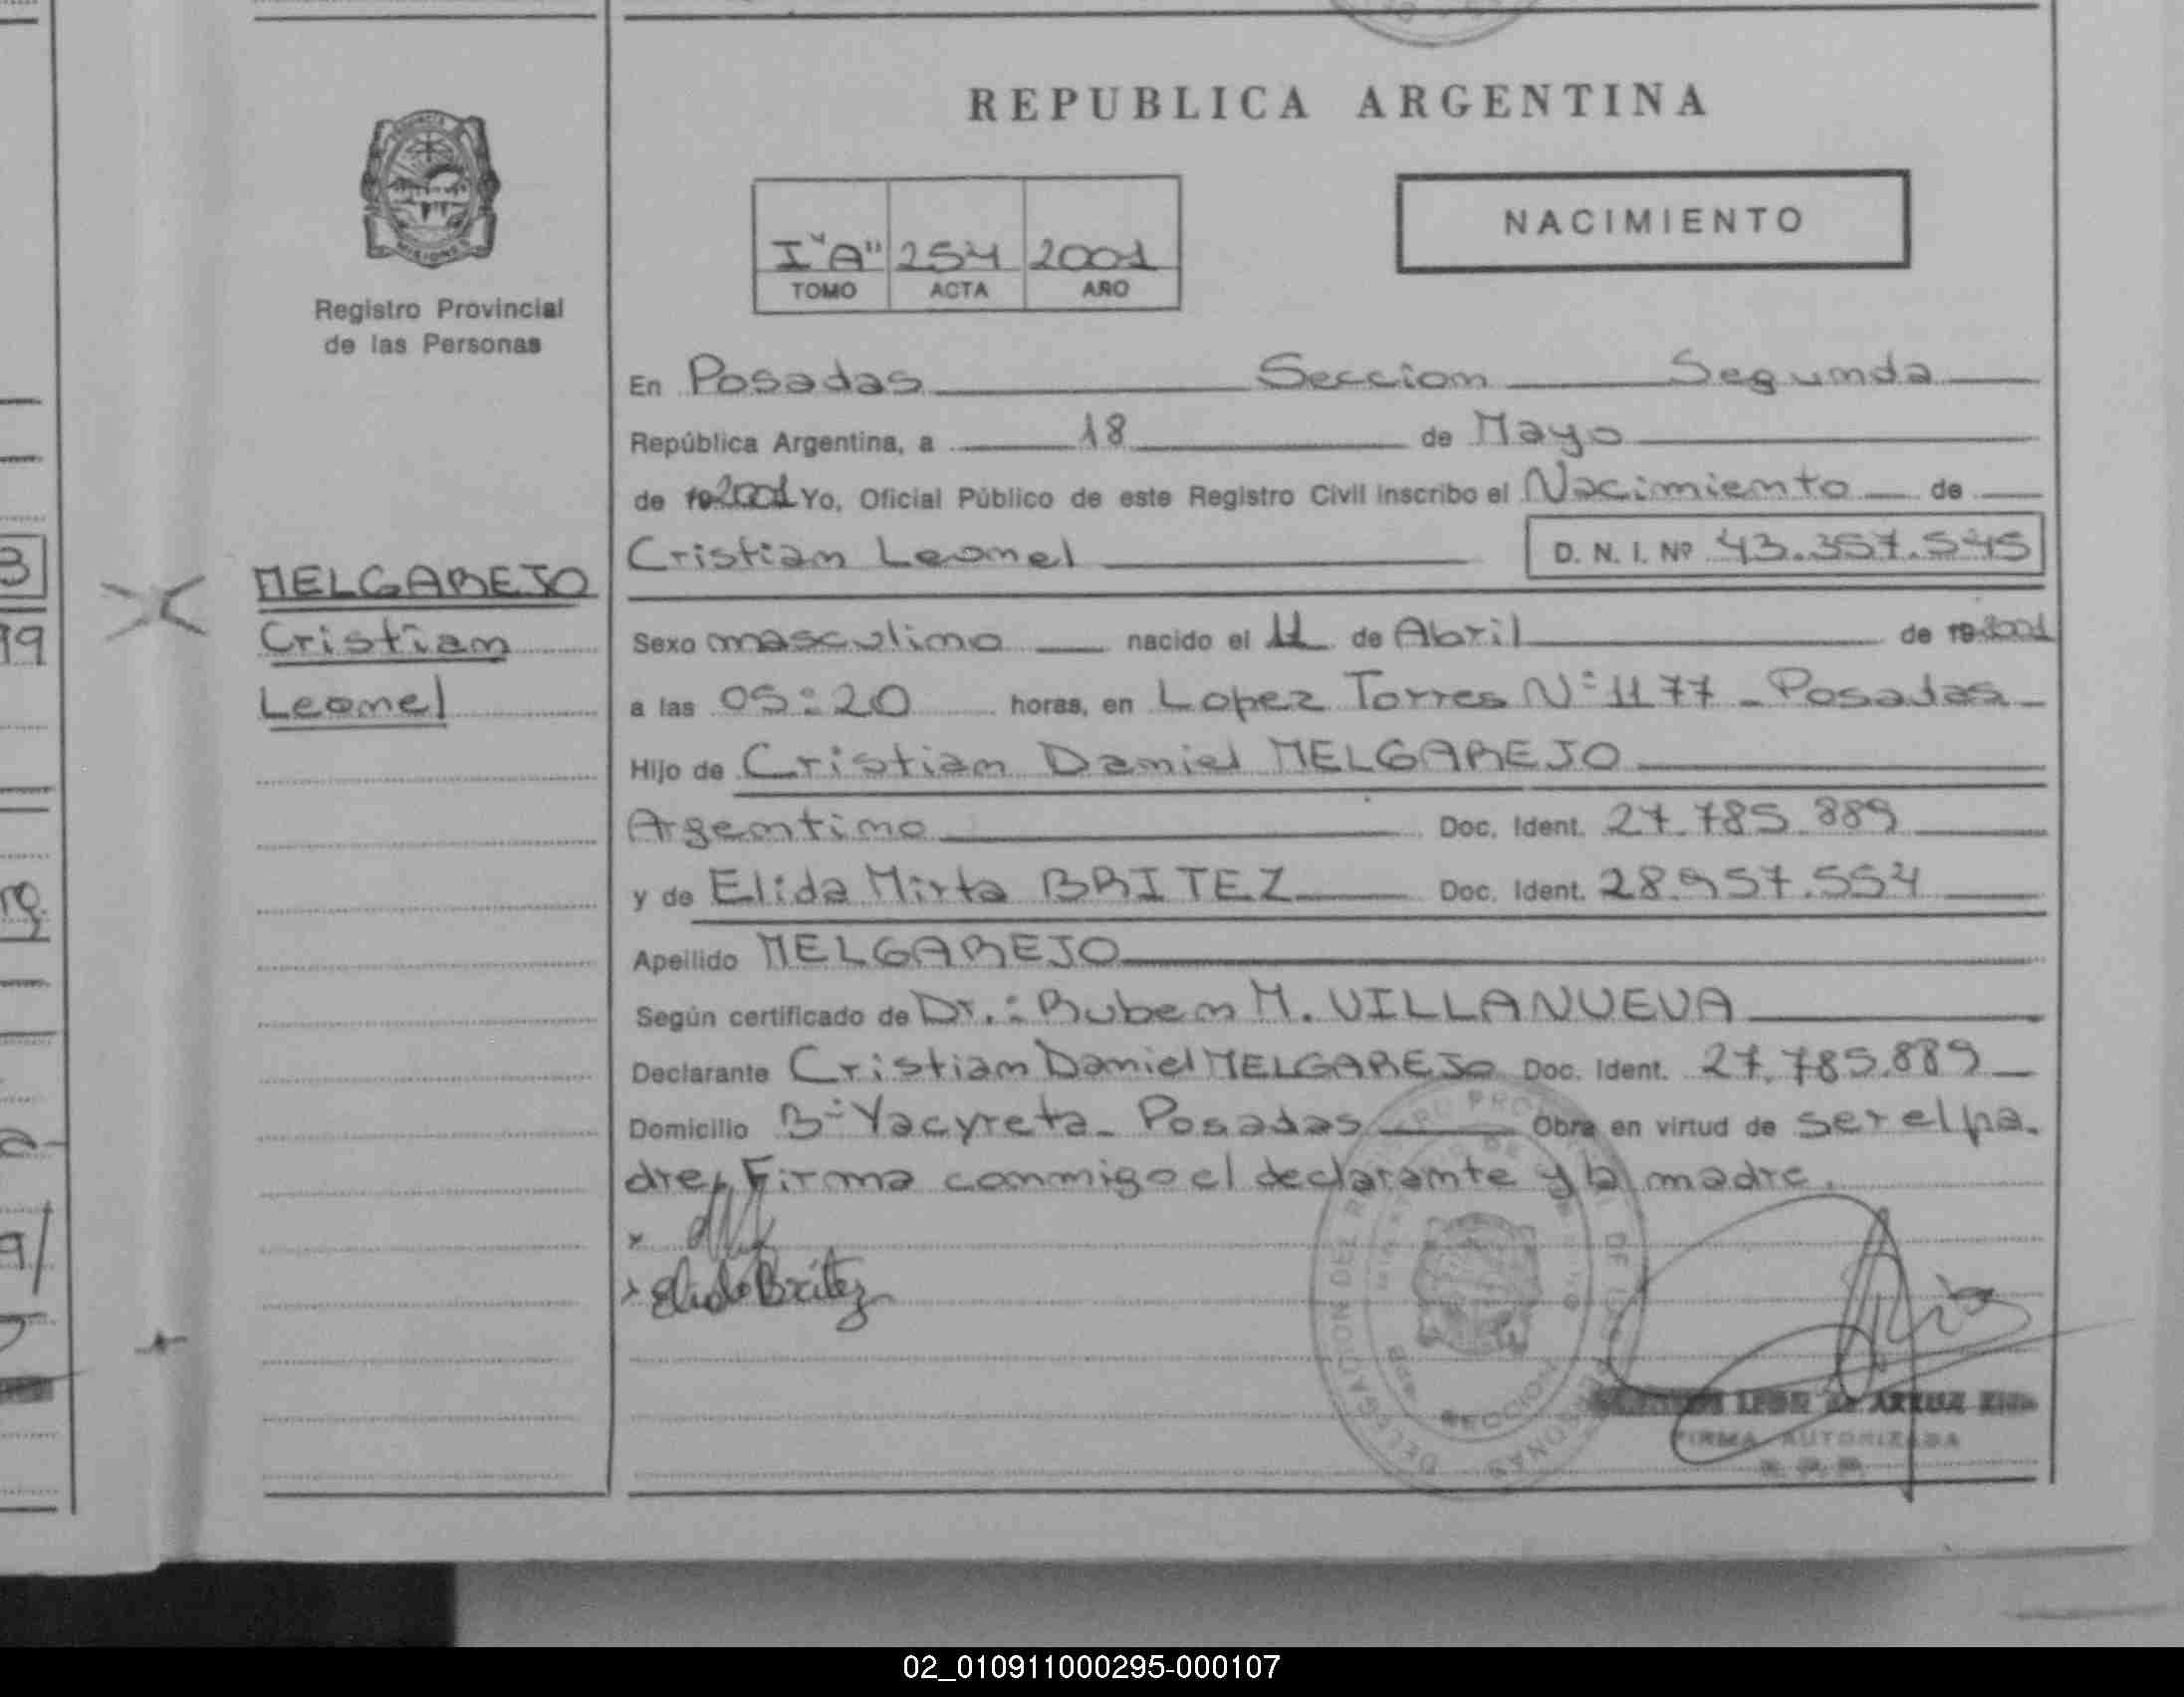 REPUBLICA ARGENTINA
NACIMIENTO
I "A" 254 2001
TOMO ACTA AÑO
Registro Provincial
de las Personas
En Posadas Seccion Segunda
República Argentina, a 18 de Mayo
de 19 2001 Yo, Oficial Público de este Registro Civil inscribo el Nacimiento de
Cristian Leonel D. N. I. Nº 43.357.545
MELGAREJO
Cristian
Leonel
Sexo masculino nacido el 11 de Abril de 19 2001
a las 05:20 horas, en Lopez Torres Nº 1177 - Posadas -
Hijo de Cristian Daniel MELGAREJO
Argentino Doc. Ident. 27.785.889
y de Elida Mirta BRITEZ Doc. Ident. 28.957.554
Apellido MELGAREJO
Según certificado de Dr.: Ruben M. VILLANUEVA
Declarante Cristian Daniel MELGAREJO Doc. Ident. 27.785.889
Domicilio Bº Yacyreta - Posadas Obra en virtud de ser el pa-
dre, Firma conmigo el declarante y la madre.
x
x Elida Britez
FIRMA AUTORIZADA
02_010911000295-000107